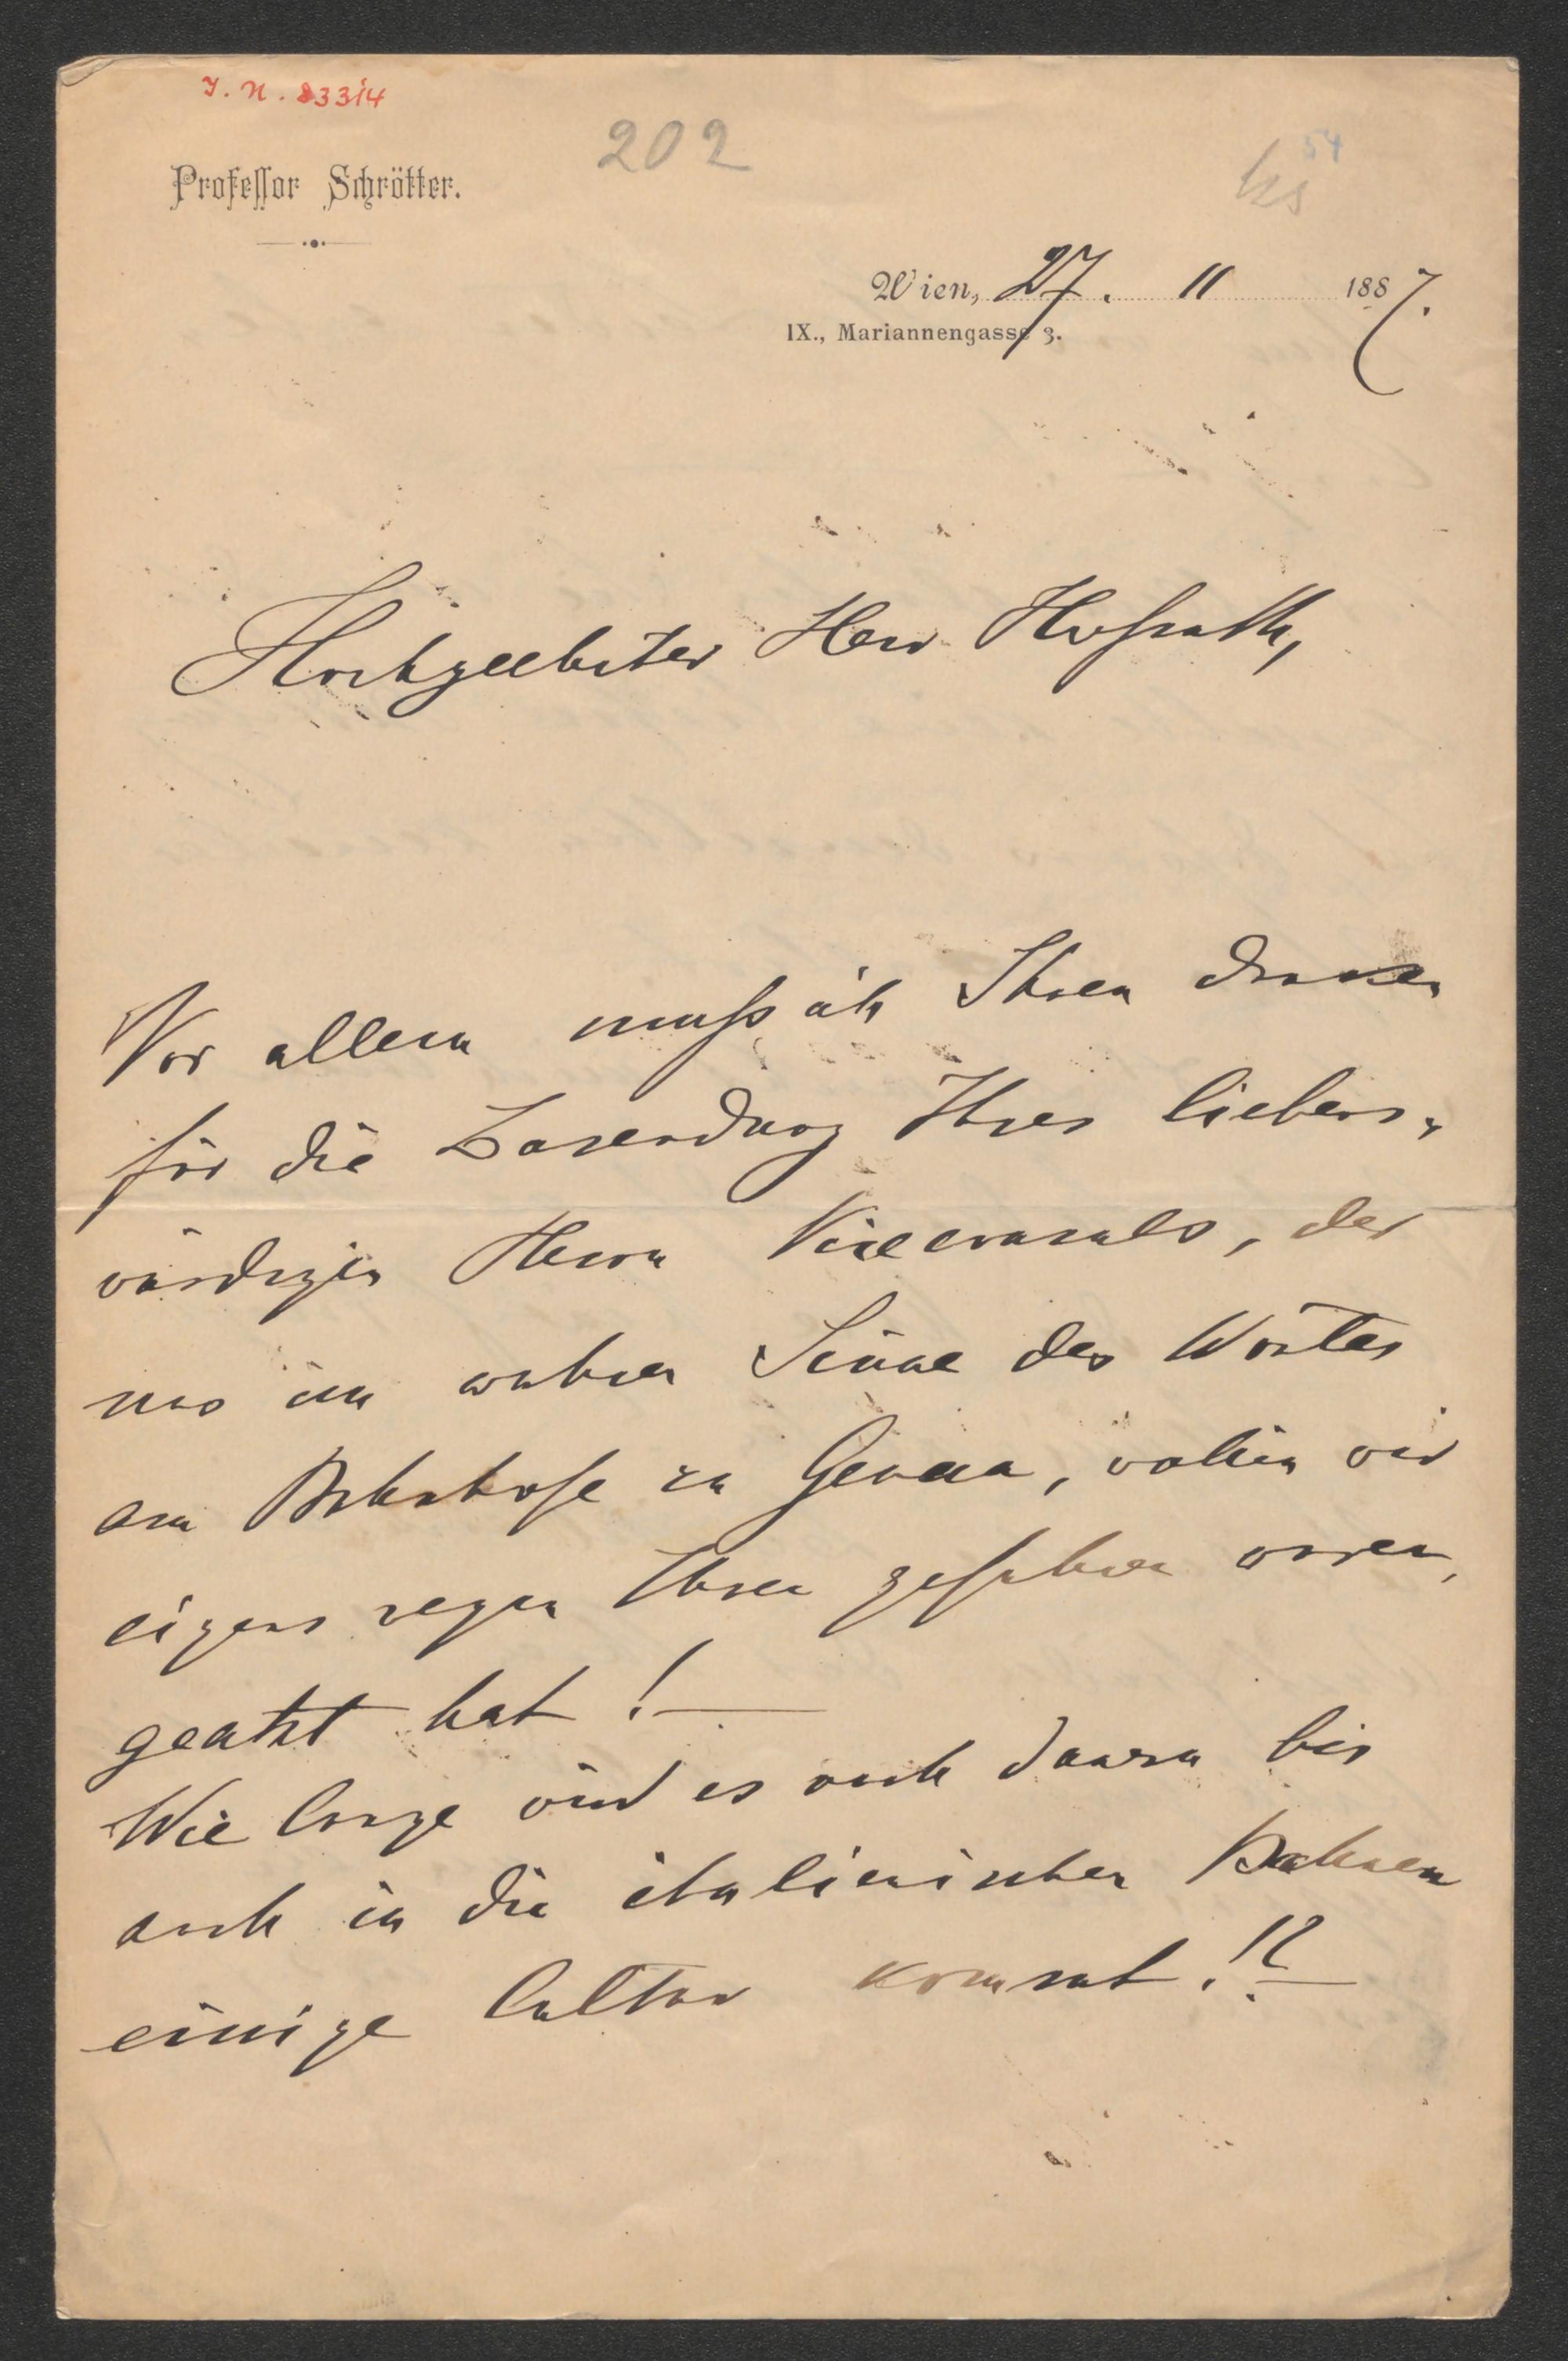 I. N. 83314
202
54
ks
Professor Schrötter.
Wien, 27. 11 1887.
IX., Mariannengasse 3.
Hochgeehrter Herr Hofrath,
Vor allem muß ich Ihnen danken
für die Zusendung Ihres liebens-
würdigen Herrn Viceconsuls, der
uns im wahren Sinne des Wortes
am Bahnhofe in Genua, wohin wir
eigens wegen Ihnen gefahren waren,
geatzt hat! —
Wie lange wird es noch dauern bis
auch in die italienischen Bahnen
einige Cultur kommt!? —